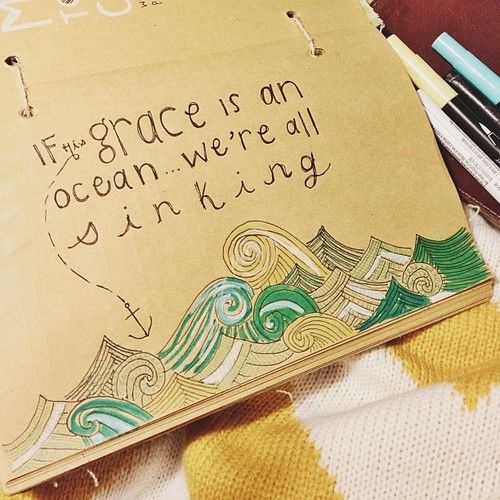 IF his grace is an
ocean... we're all
sinking